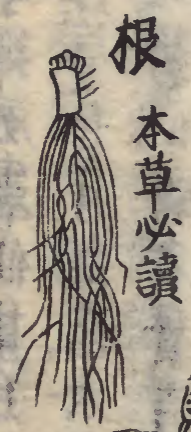 根
本草必讀